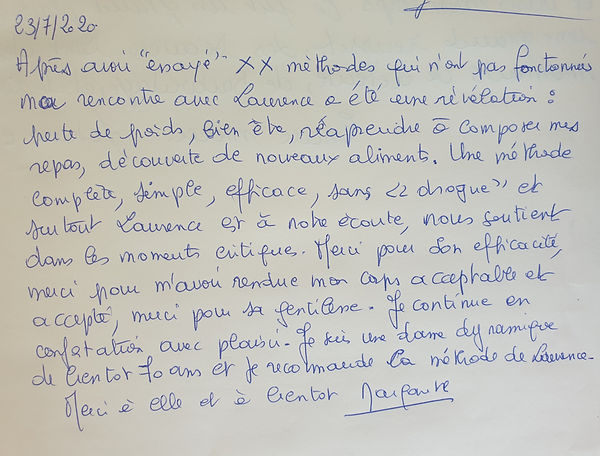 23/7/2020
Après avoir "essayé" XX méthodes qui n'ont pas fonctionnés
ma rencontre avec Laurence a été une révélation :
perte de poids, bien être, réaprendre à composer mes
repas, découverte de nouveaux aliments. Une méthode
complète, simple, efficace, sans "drogue" et
surtout Laurence est à notre écoute, nous soutient
dans les moments critiques. Merci pour son efficacité,
merci pour m'avoir rendue mon corps acceptable et
accepté, merci pour sa gentillesse. Je continue en
avec plaisir. Je suis une dame dynamique
de bientot 70 ans et je recomande la méthode de Laurence.
Merci à elle et à bientot